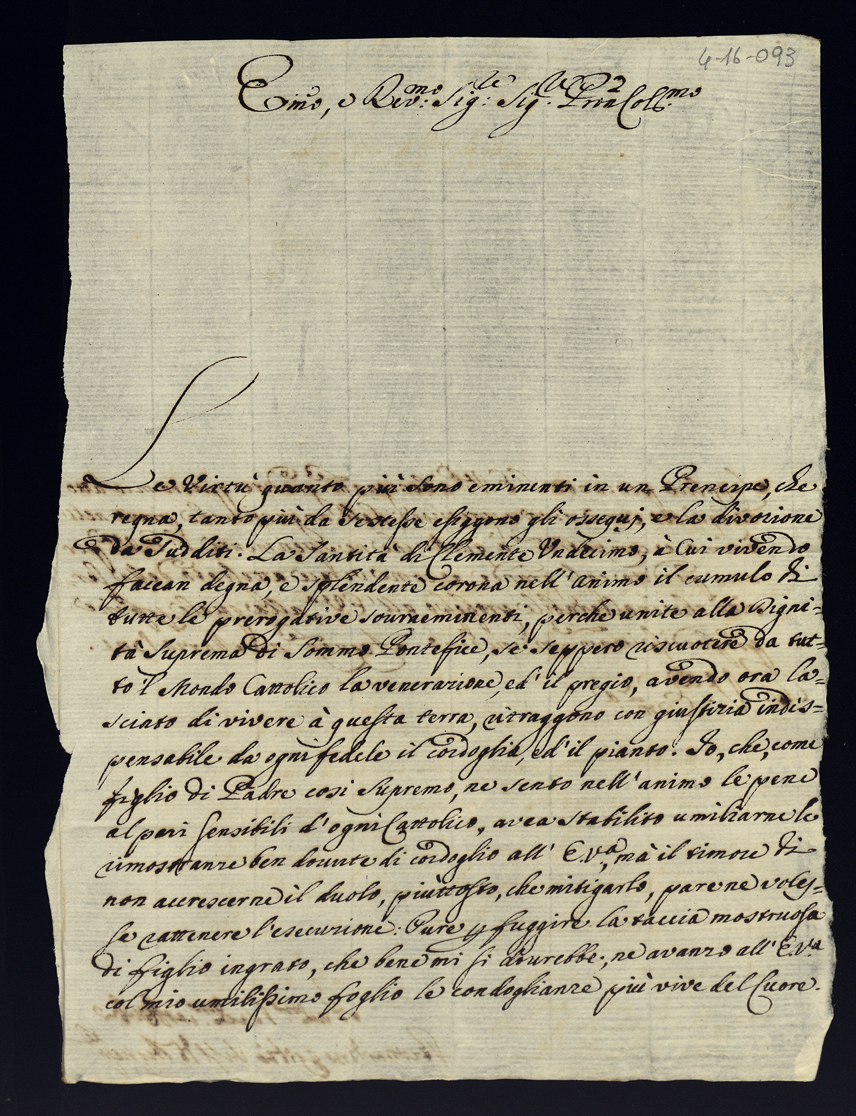 4-16-093
Emo, e Rev:mo Sig:le Sig:re Prn Col:mo
Le Virtù quanto più sono eminenti in un Prencipe, che
regna, tanto più da sestesse esiggono gli ossequj, e la divozione
da Sudditi. La Santità di Clemente Undecimo, à Cui vivendo
faccan degna, e splendente corona nell'animo il cumulo di
tutte le prerogative souraeminenti, perche unite alla Digni=
tà Suprema di Sommo Pontefice, se seppero riscuotere da tut=
to 'l Mondo Cattolico la venerazione, ed' il pregio, avendo ora la=
sciato di vivere à questa terra, ritraggono con giustizia indis=
pensabile da ogni fedele il cordoglio, ed' il pianto. Io, che, come
figlio di Padre così Supremo, ne sento nell'animo le pene
al pari sensibili d'ogni Cattolico, avea stabilito umiliarne le
rimostranze ben dovute di cordoglio all' E.V.a, mà il timore di
non accrescerne il duolo, piùttosto, che mitigarlo, parene voles=
se rattenere l'esecuzione: Pure p fuggire la taccia mostruosa
di figlio ingrato, che bene mi si dourebbe, ne avanzo all' E.V.a
col mio umilissimo foglio le condoglianze più vive del Cuore.